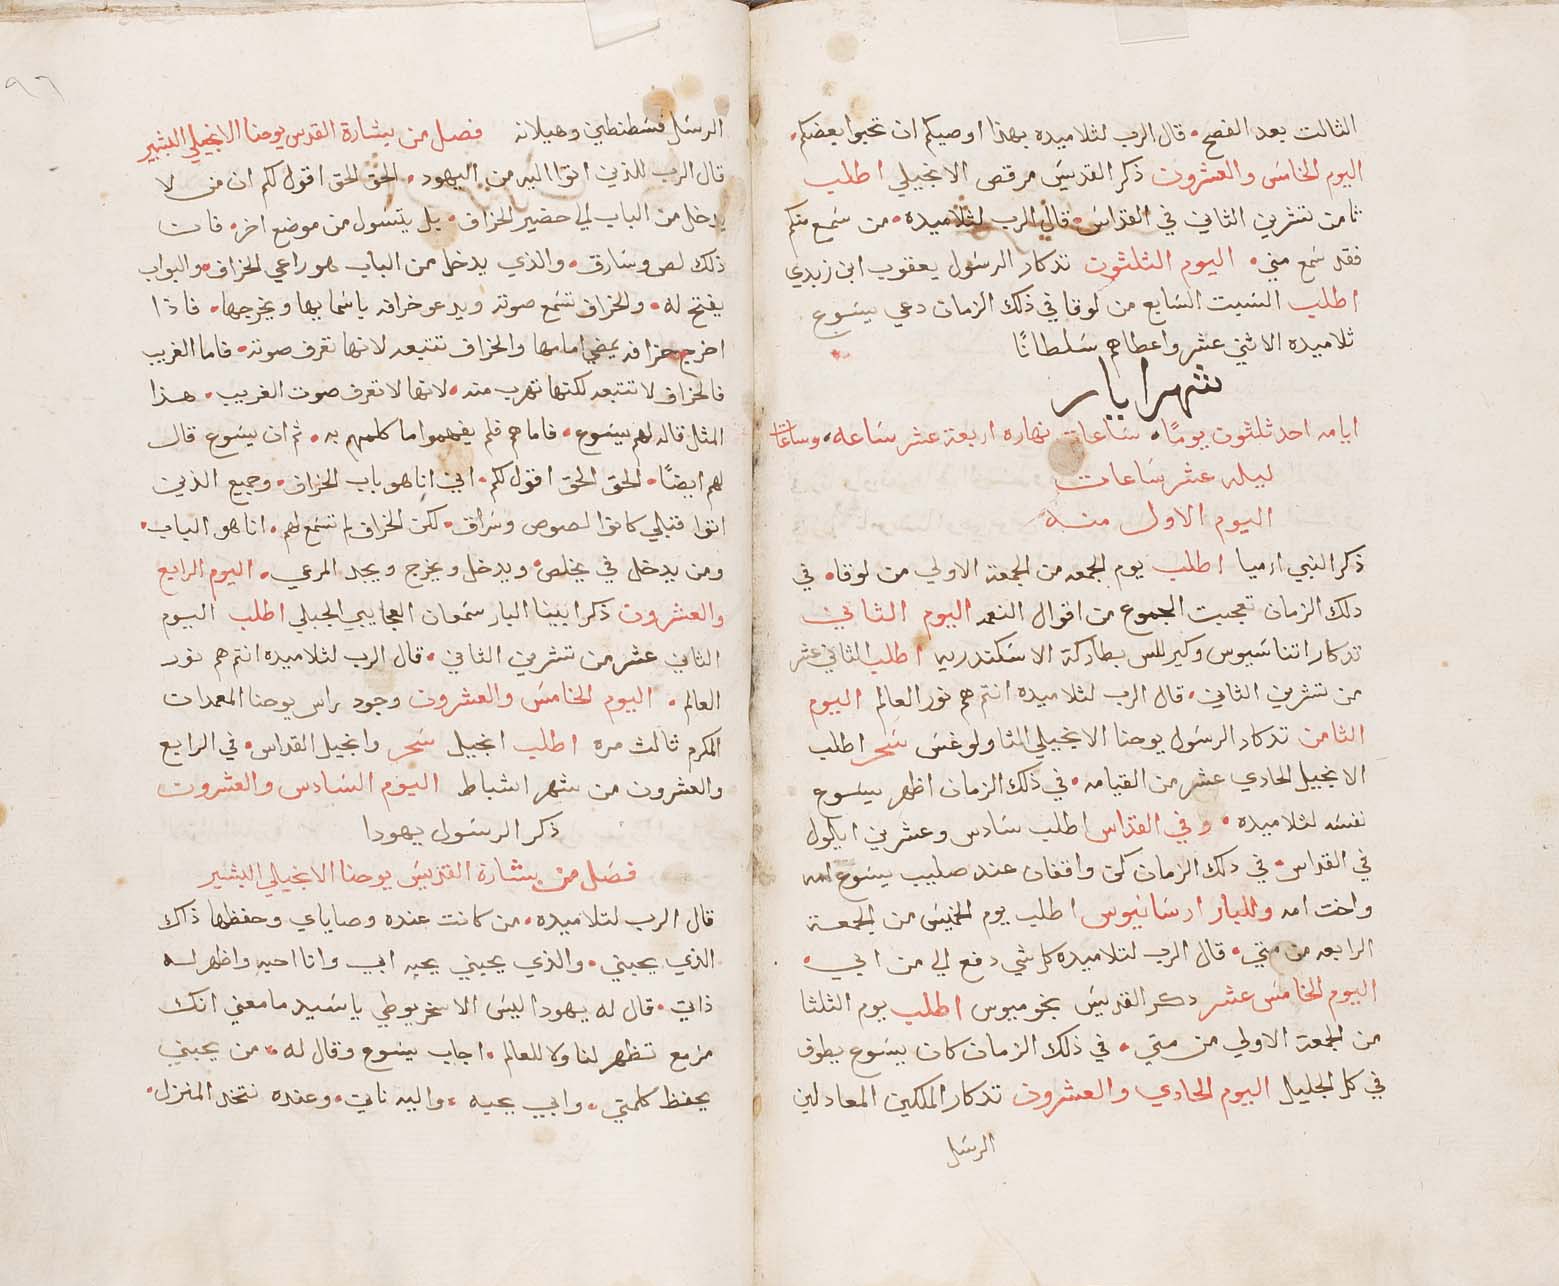 الثالث بعد الفصح٠ قال الرب لتلاميده بهذا اوصيكم ان تحبوا بعضكم٠
اليوم الخامس والعشرون ذكر القديس مرقص الانجيلي اطلب
ثامن تشرين الثاني في القداس٠ قال الرب لتلاميده٠ من سمع منكم
فقد سمع مني٠ اليوم الثلثون تدكار الرسول يعقوب ابن زبدي
اطلب السبت السابع من لوقا في ذلك الزمان دعي يسوع
ثلاميده الاثني عشر واعطاهم سلطانًا
شهر ايار
ايامه احد ثلثون يومًا٠ ساعات نهاره اربعة عشر ساعه٠ وساعات
ليله عشر ساعات
اليوم الاول منه
ذكر النبي ارميا اطلب يوم الجمعه من الجمعة الاولي من لوقا٠ في
دلك الزمان تعجبت الجموع من اقوال النعمه اليوم الثاني
تدكار اتناسيوس وكيرللس بطاركة الاسكندريه اطلب الثاني عشر
من تشرين الثاني٠ قال الرب لتلاميده انتم هم نور العالم اليوم
الثامن تدكار الرسول يوحنا الانجيلي الثاولوغس سحر اطلب
الانجيل الحادي عشر من القيامه٠ في ذلك الزمان اظهر يسوع
نفسه لتلاميده٠ وفي القداس اطلب سادس وعشرين ايلول
في القداس٠ في دلك الزمان كن واقفان عند صليب يسوع امه
واخت امه وللبار ارسانيوس اطلب يوم الخميس من الجمعة
الرابعه من متي٠ قال الرب لتلاميده كل شي دفع الي من ابي٠
اليوم الخامس عشر دكر القديس بخوميوس اطلب يوم الثلثا
من الجمعة الاولي من متي٠ في ذلك الزمان كان يسوع يطوف
في كل الجليل اليوم الحادي والعشرون تدكار الملكين المعادلين
الرسل
٩٦
الرسل قسطنطين وهيلانه فصل من بشارة القديس يوحنا الانجيلي البشير
قال الرب للذين اتوا اليه من اليهود٠ الحق الحق اقول لكم ان من لا
يدخل من الباب الي حضير الخراف٠ بل يتسول من موضع اخر٠ فان
ذلك لص وسارق٠ والذي يدخل من الباب هو راعي الخراف٠ والبواب
يفتح له٠ والخراف تسمع صوته ويدعو خرافه باسمايها ويخرجها٠ فاذا
اخرج خرافه يمضي امامها والخراف تتبعه لانها تعرف صوته٠ فاما الغريب
فالخراف لا تتبعه لكنها تهرب منه٠ لانها لا تعرف صوت الغريب٠ هذا
المثل قاله لهم يسوع٠ فاما هم فلم يفهموا ما كلمهم به٠ ثم ان يسوع قال
لهم ايضًا٠ الحق الحق اقول لكم٠ اني انا هو باب الخراف٠ وجميع الذين
اتوا قبلي كانوا لصوص وسراق٠ لكن الخراف لم تسمع لهم٠ انا هو الباب٠
ومن يدخل في يخلص٠ ويدخل ويخرج ويجد المرعي٠ اليوم الرابع
والعشرون ذكر ابينا البار سمعان العجايبي الجبلي اطلب اليوم
الثاني عشر من تشرين الثاني٠ قال الرب لتلاميده انتم هم نور
العالم٠ اليوم الخامس والعشرون وجود راس يوحنا المعمدان
المكرم ثالث مره اطلب انجيل سحر وانجيل القداس٠ في الرابع
والعشرون من شهر اشباط اليوم السادس والعشرون
ذكر الرسول يهودا
فصل من بشارة القديس يوحنا الانجيلي البشير
قال الرب لتلاميده٠ من كانت عنده وصاياي وحفظها ذاك
الذي يحبني٠ والذي يحبني يحبه ابي وانا احبه واظهر له
ذاتي٠ قال له يهودا ليس الاسخريوطي يا سيد ما معني انك
مزمع تظهر لنا ولا للعالم٠ اجاب يسوع وقال له٠ من يحبني
يحفظ كلمتي٠ وابي يحبه٠ واليه ناتي٠ وعنده نتخد المنزل٠